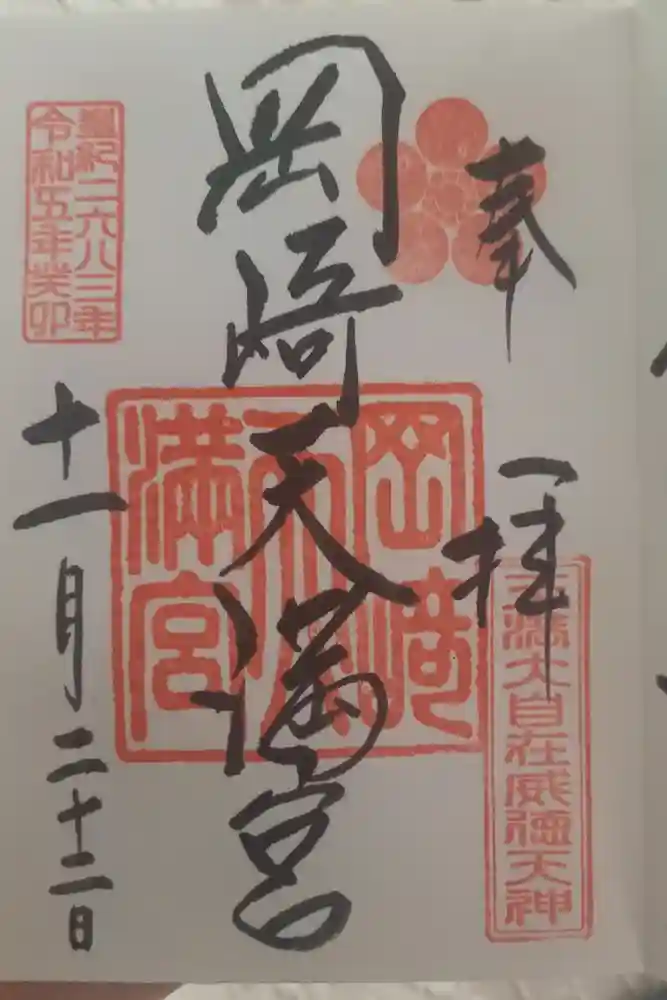 奉拝
天満大自在威徳天神
岡崎天満宮
岡崎天満宮
皇紀二六八三年
令和五年癸卯
十一月二十二日